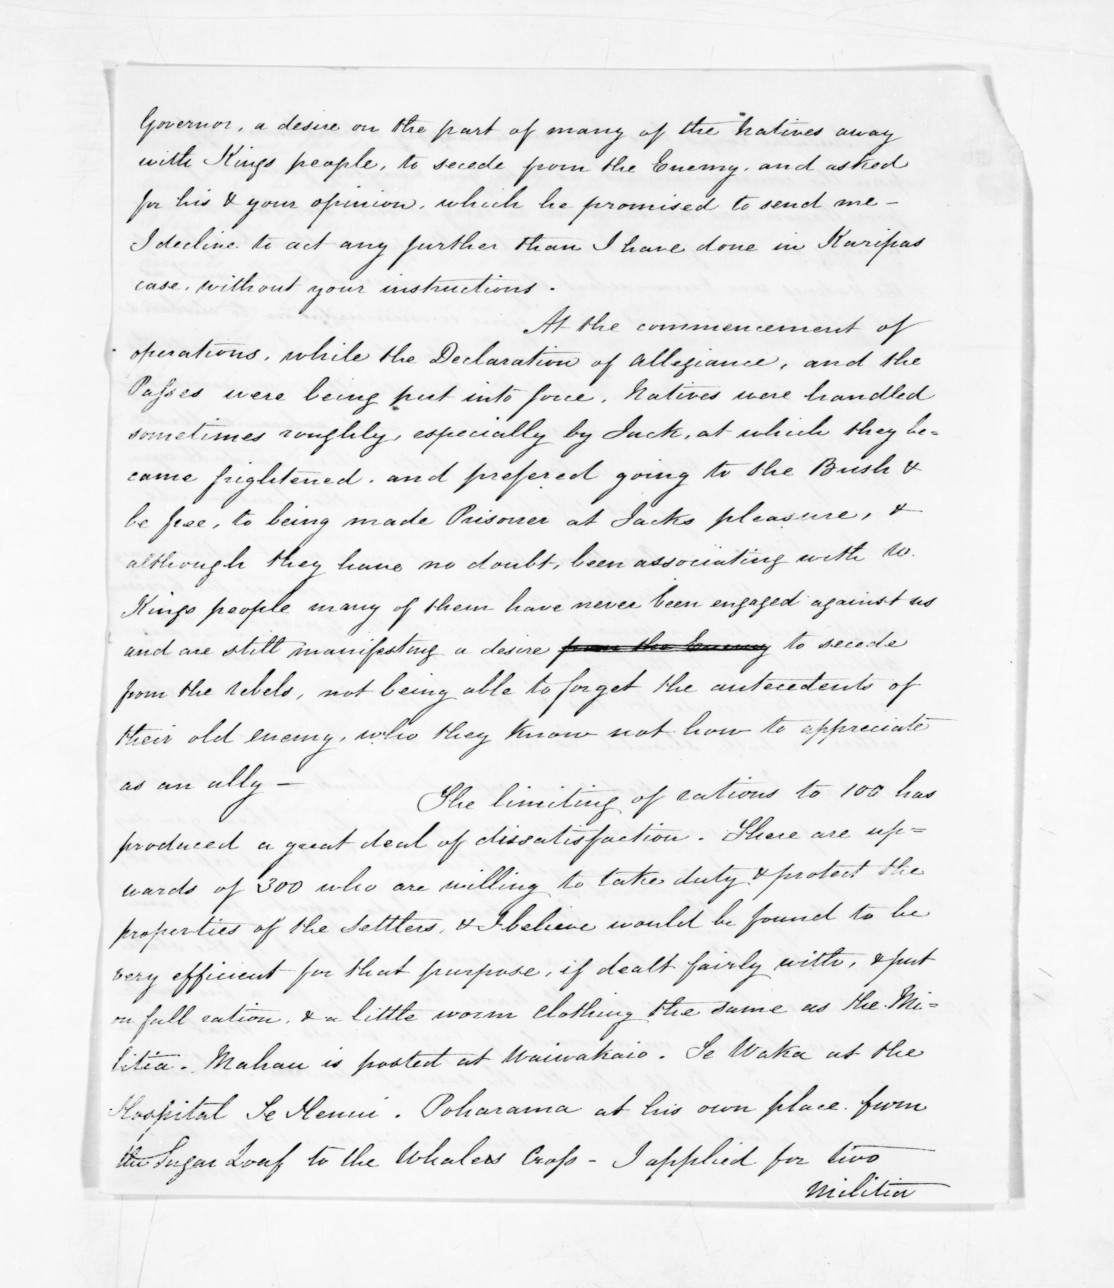 Governor, a desire on the part of many of the Natives away
with Kings people, to secede from the Enemy, and asked
for his & your opinion, which he promised to send me -
I decline to act any further than I have done in Karipas
case, without your instructions.
At the commencement of
operations, while the Declaration of Allegiance, and the
Passes were being put into force, Natives were handled
sometimes roughly, especially by Jack, at which they be=
came frightened, and prefered going to the Bush &
be free, to being made Prisoner at Jacks pleasure, &
although they have no doubt, been associating with W.
Kings people many of them have never been engaged against us
and are still manifesting a desire from the Enemy to secede
from the rebels, not being able to forget the antecedents of
their old enemy, who they know not how to appreciate
as an ally -
The limiting of rations to 100 has
produced a great deal of dissatisfaction. There are up=
wards of 300 who are willing to take duty & protect the
properties of the Settlers, & I believe would be found to be
very efficient for that purpose, if dealt fairly with, & put
on full ration, & a little worm clothing the same as the Mi=
litia. Mahau is posted at Waiwakaio. Te Waka at the
Hospital Te Henui. Poharama at his own place from
the Sugar Loaf to the Whalers Crop - I applied for two
Militia